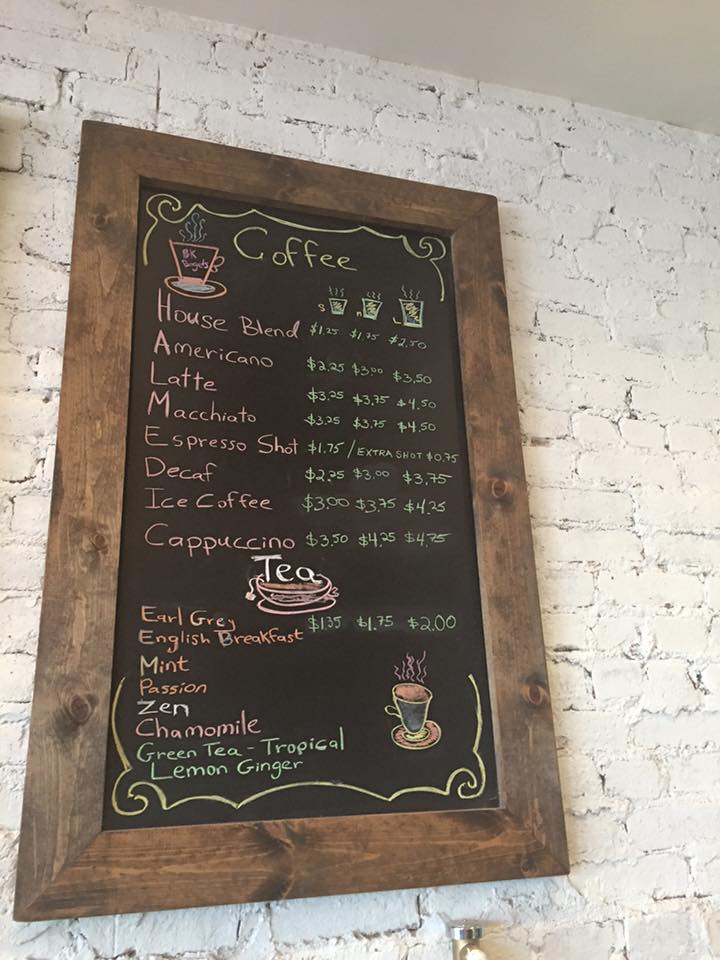 BK
Bagels
Coffee
S M L
House Blend $1.25 $1.75 $2.50
Americano $2.25 $3.00 $3.50
Latte $3.25 $3.75 $4.50
Macchiato $3.25 $3.75 $4.50
Espresso Shot $1.75 / EXTRA SHOT $0.75
Decaf $2.25 $3.00 $3.75
Ice Coffee $3.00 $3.75 $4.25
Cappuccino $3.50 $4.25 $4.75
Tea
Earl Grey $1.35 $1.75 $2.00
English Breakfast
Mint
Passion
Zen
Chamomile
Green Tea - Tropical
Lemon Ginger